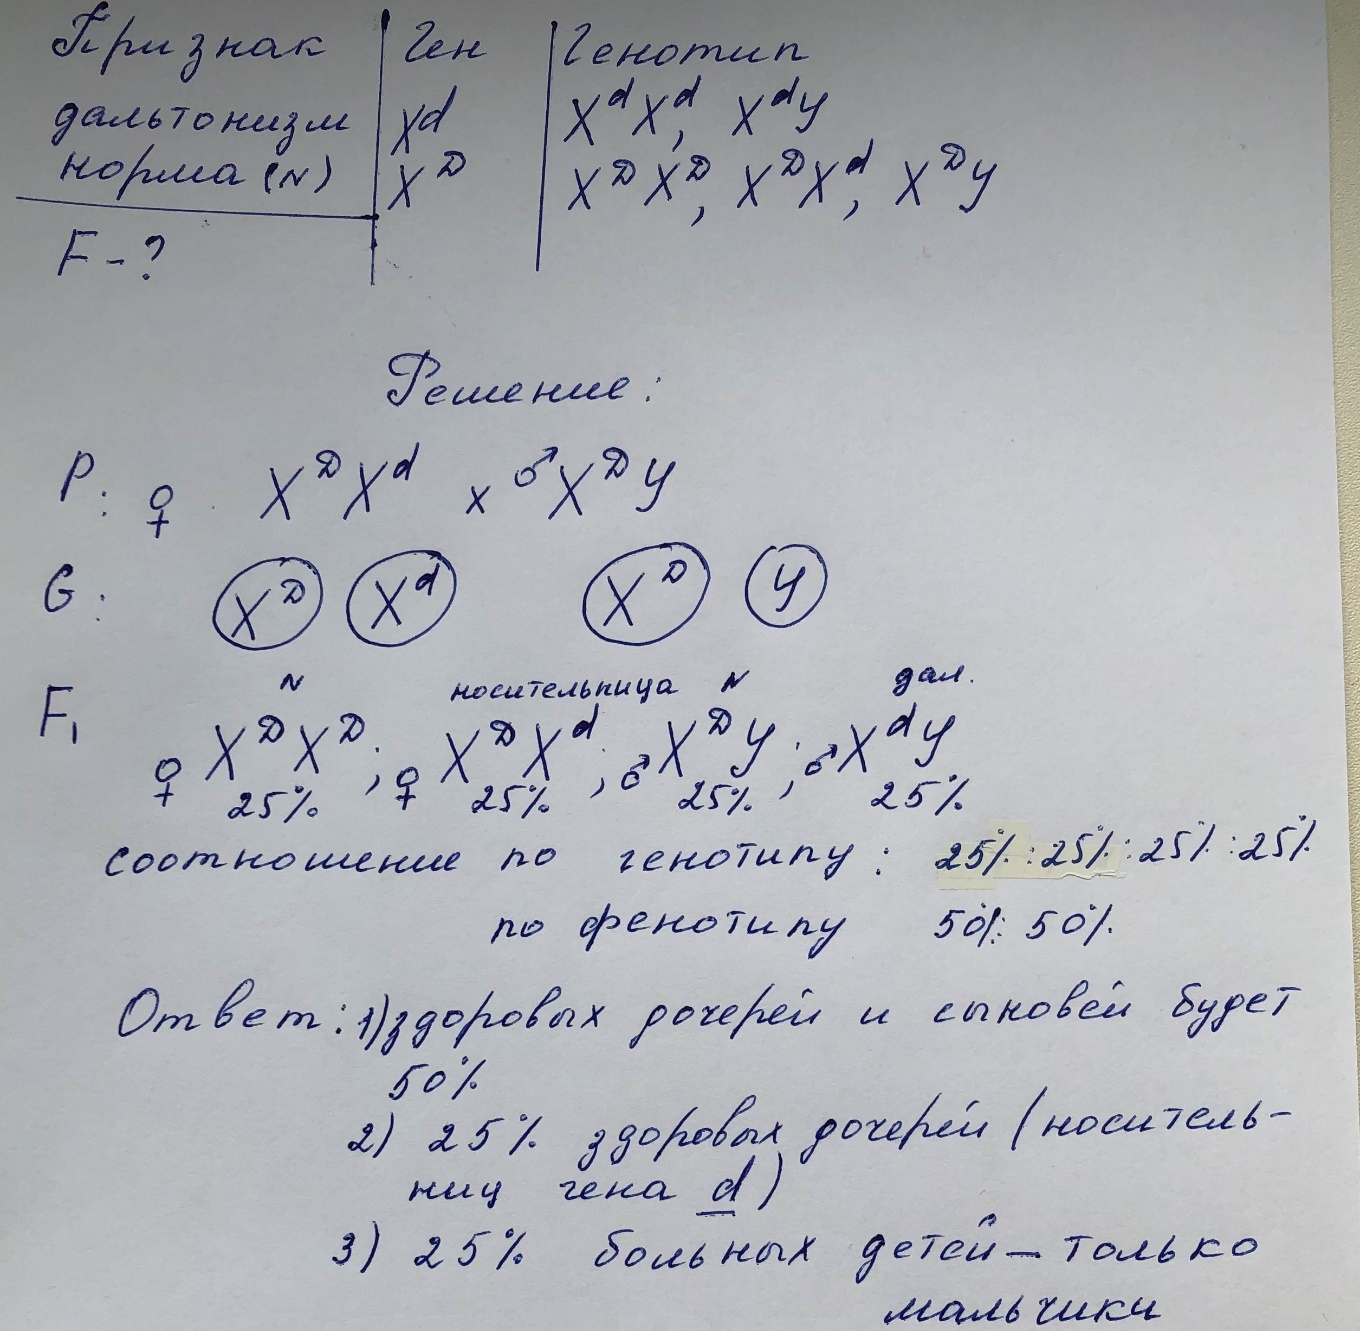 Признак Ген Генотип
дальтонизм X^d X^dX^d, X^dY
норма (N) X^D X^DX^D, X^DX^d, X^DY
F - ?
Решение:
P: ♀ X^DX^d x ♂X^DY
G: X^D X^d X^D Y
N носительница N дал.
F₁ ♀ X^DX^D; ♀ X^DX^d; ♂ X^DY; ♂ X^dY
25%, 25%, 25%, 25%
соотношение по генотипу: 25%:25%:25%:25%
по фенотипу 50%: 50%
Ответ: 1) здоровых дочерей и сыновей будет
50%
2) 25% здоровых дочерей (носитель-
ниц гена d)
3) 25% больных детей – только
мальчики